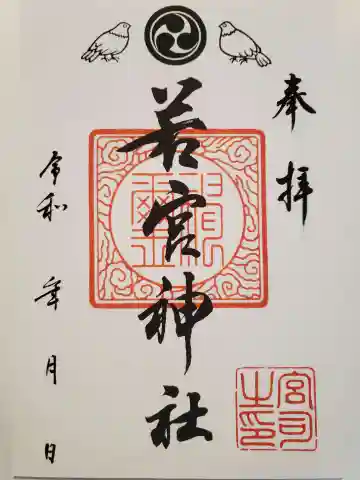 奉拝
若宮神社
宮司之印
令和 年 月 日